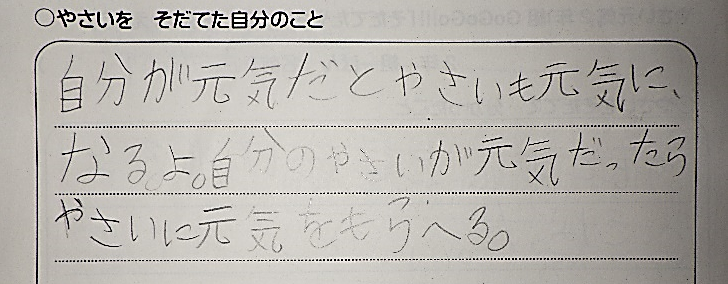 ○やさいを　そだてた自分のこと
自分が元気だとやさいも元気に、
なるよ。自分のやさいが元気だったら
やさいに元気をもらへる。